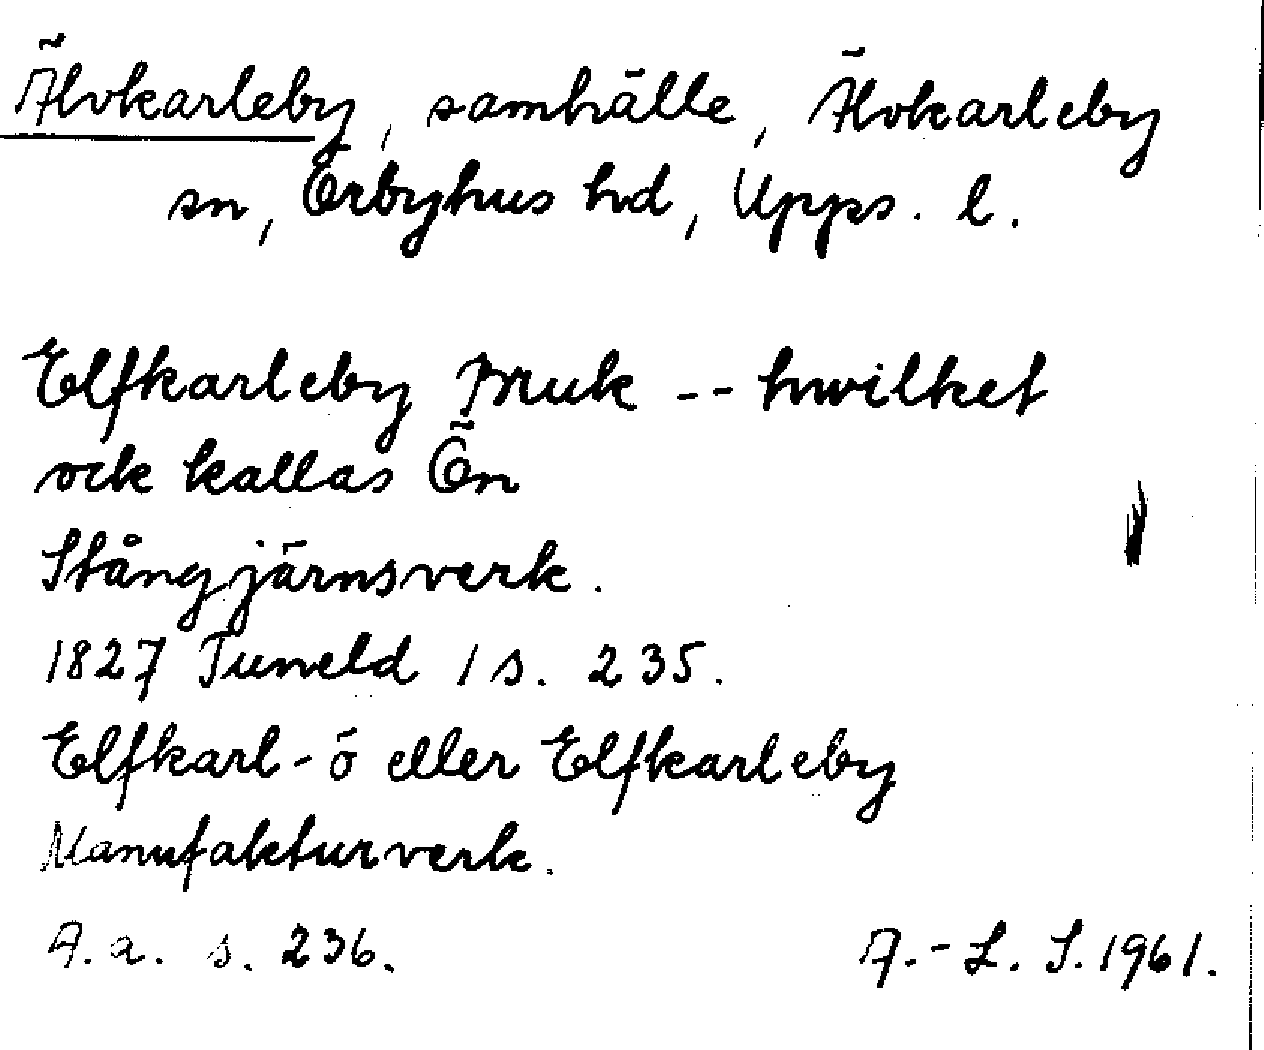 Älvkarleby, samhälle, Älvkarleby
sn, Örbyhus hd, Upps. l.
Elfkarleby Bruk -- hwilket
ock kallas Ön
Stångjärnsverk.
1827 Tuneld 1 s. 235.
Elfkarl-ö eller Elfkarleby
Manufakturverk.
A. a. s. 236.
A.-L. S. 1961.